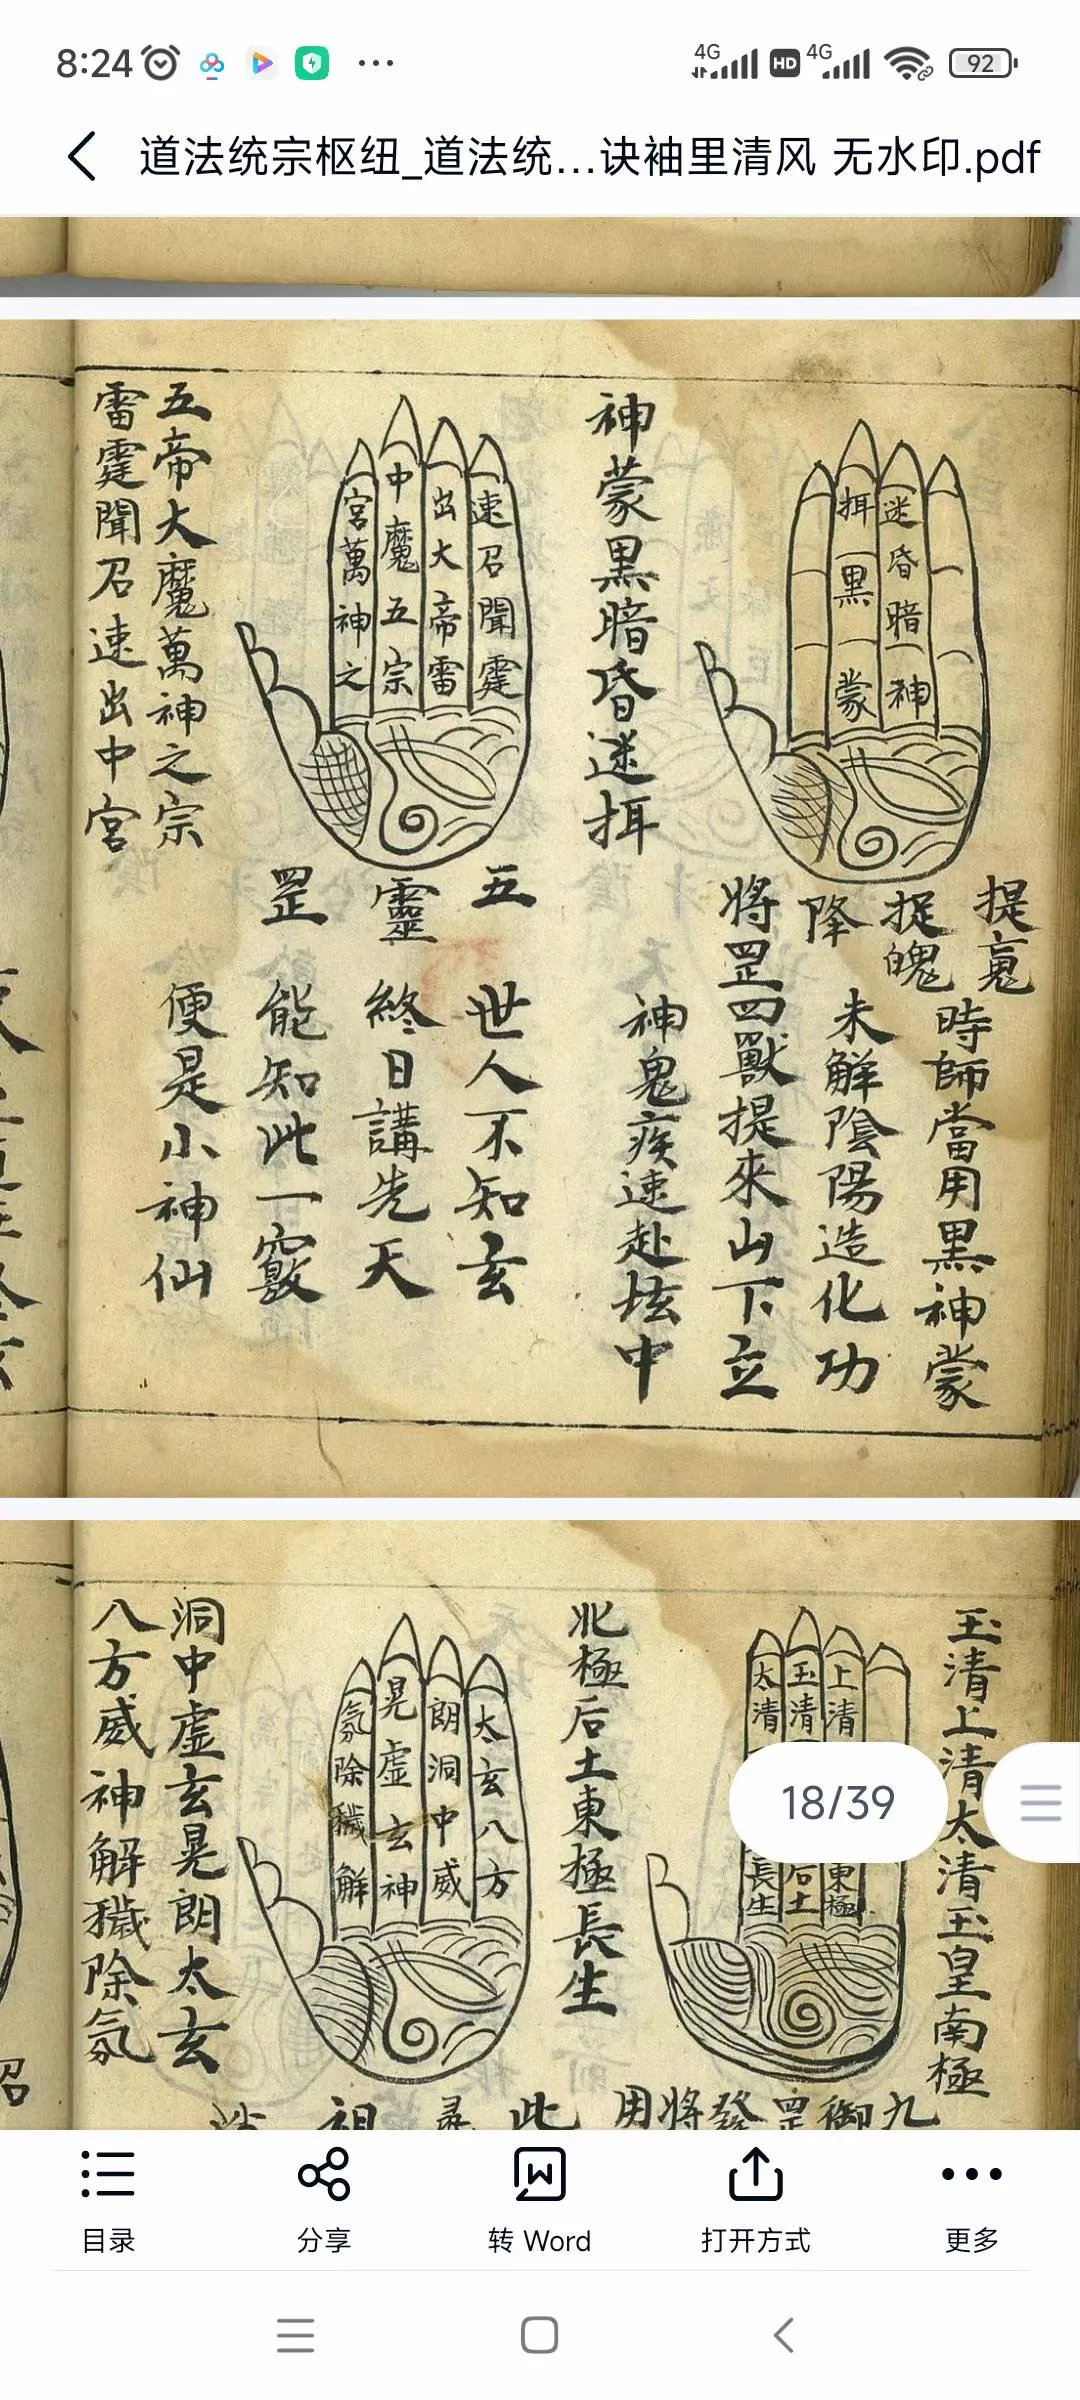 8:24
4G HD 4G 92
道法统宗枢纽_道法统...诀袖里清风 无水印.pdf
迷昏暗神
挕黑蒙
提䰟
捉魄
降
將罡四獸提來山下立
時師當用黑神蒙
未解陰陽造化功
神鬼疾速赴坛中
神蒙黑暗昏迷挕
速召聞霆
出大帝雷
中魔五宗
宮萬神之
五
靈
罡
世人不知玄
終日講先天
能知此一竅
便是小神仙
五帝大魔萬神之宗
雷霆聞召速出中宮
玉清上清太清玉皇南極
上清
玉清
太清
東極
后土
長生
北極后土東極長生
九御罡發將用此
祖
太玄八方
朗洞中威
晃虚玄神
氛除穢解
洞中虚玄晃朗太玄
八方威神解穢除氛
召
18/39
目录
分享
转 Word
打开方式
更多